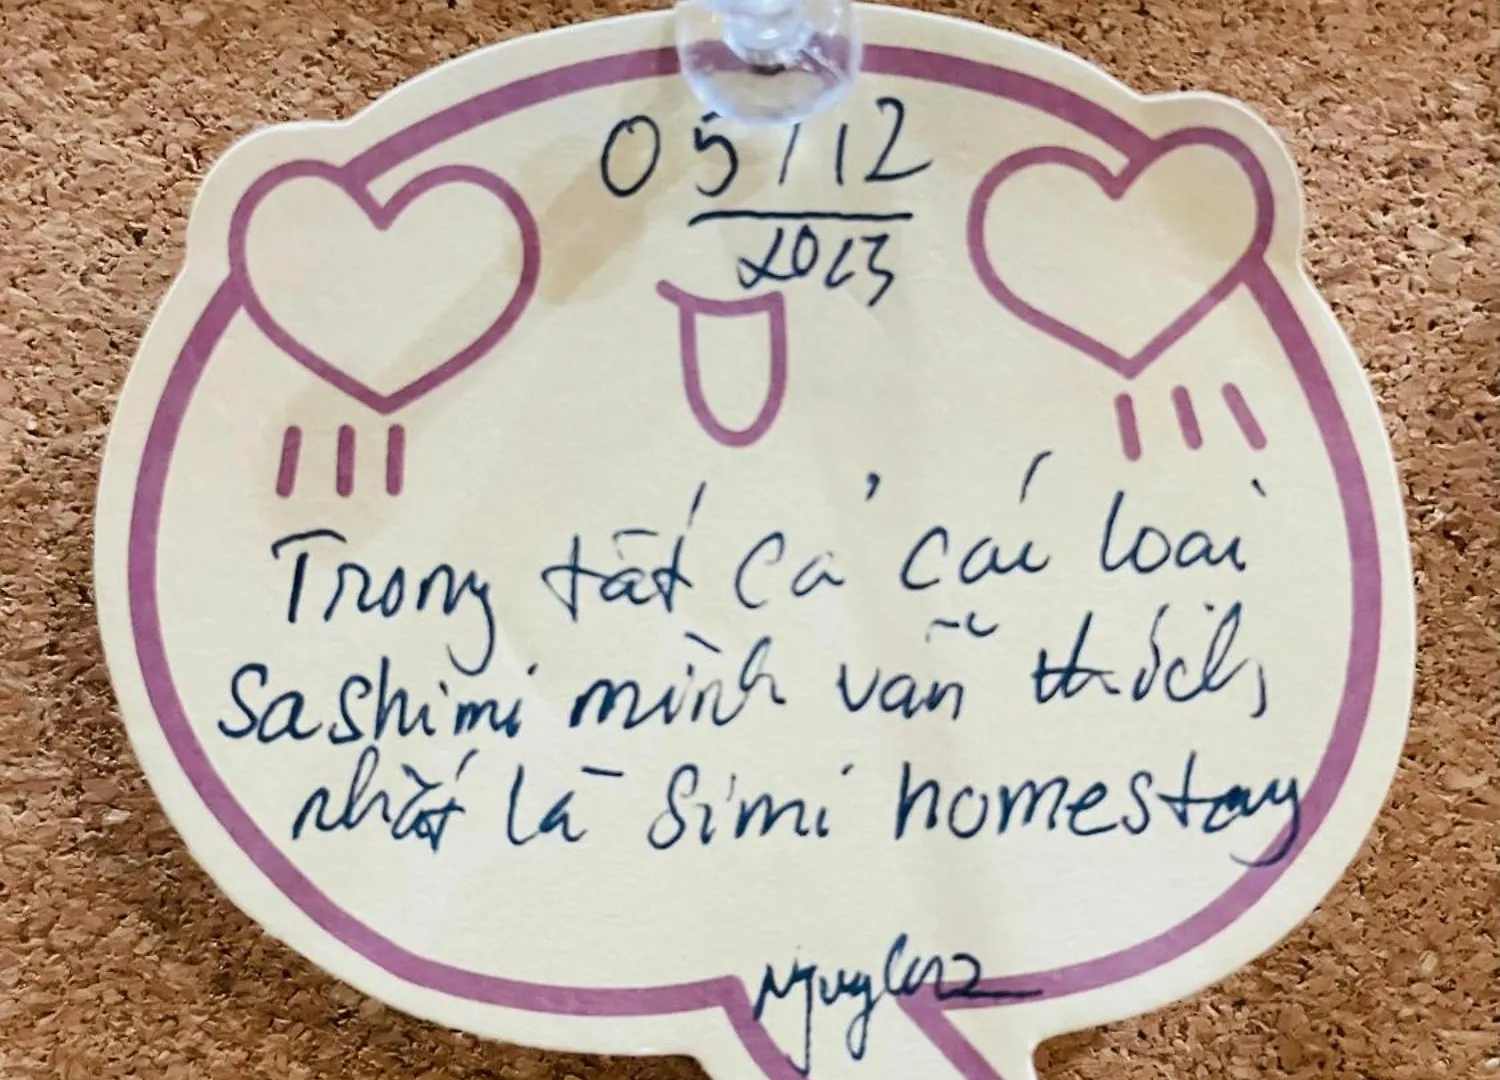 05/12
2023
Trong tất cả các loại
sashimi mình vẫn thích
nhất là Simi homestay